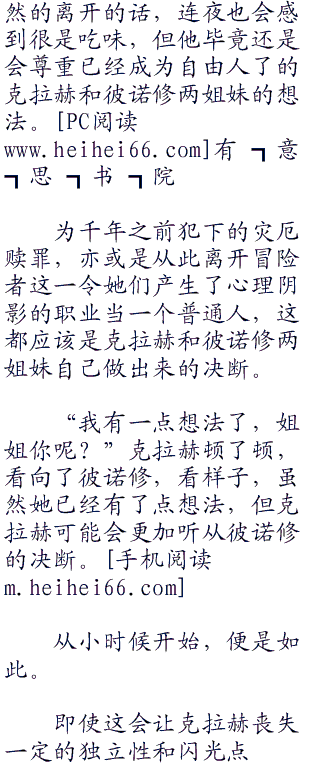 然的离开的话，连夜也会感
到很是吃味，但他毕竟还是
会尊重已经成为自由人了的
克拉赫和彼诺修两姐妹的想
法。[PC阅读
www.heihei66.com]有 ┓意
┓思 ┓书 ┓院
为千年之前犯下的灾厄
赎罪，亦或是从此离开冒险
者这一令她们产生了心理阴
影的职业当一个普通人，这
都应该是克拉赫和彼诺修两
姐妹自己做出来的决断。
“我有一点想法了，姐
姐你呢？”克拉赫顿了顿，
看向了彼诺修，看样子，虽
然她已经有了点想法，但克
拉赫可能会更加听从彼诺修
的决断。[手机阅读
m.heihei66.com]
从小时候开始，便是如
此。
即使这会让克拉赫丧失
一定的独立性和闪光点